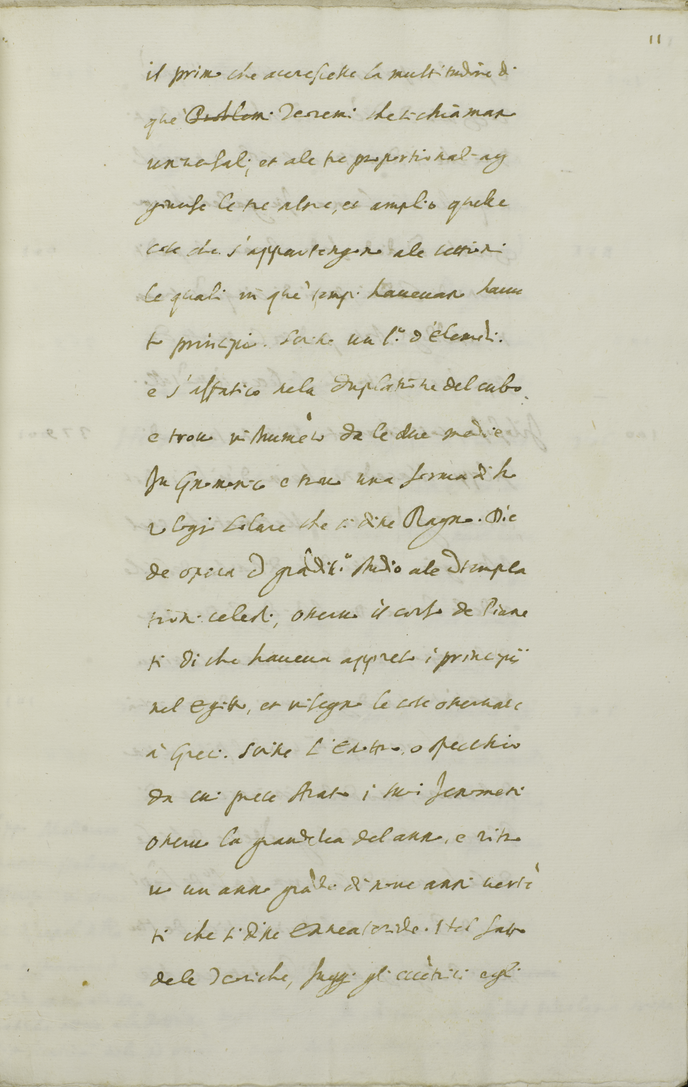 11
il primo che accrescette la multitudine di
que' Problemi Teoremi che si chiaman
universali, et ale tre proportionali ag
giunse le tre altre, et amplio quelle
cose che s'appartengono ale settioni
le quali in que' tempi havevan havu
to principio. Scrisse un l.º d'Elemẽti.
e s'affatico nela duplatione del cubo.
e trovo
da le due medie
fu Gnomonico e trovo una forma di ho
rologi solare che si dice Ragno. Die
de opera grãdiss.º studio ale cõtempla
tioni celesti, osservo il corso de Piane
ti di che haveva appreso i principij
nel Egitto, et insegno le cose osservate
a Greci. Scrisse l'Enottro, o specchio
da cui prese Arato i suoi fenomeni
osservo la grandezza del anno, e ritro
vo un anno grãde di nove anni
ti che si dice Enneateride.
dele Sferiche, gli eccẽtrici egli